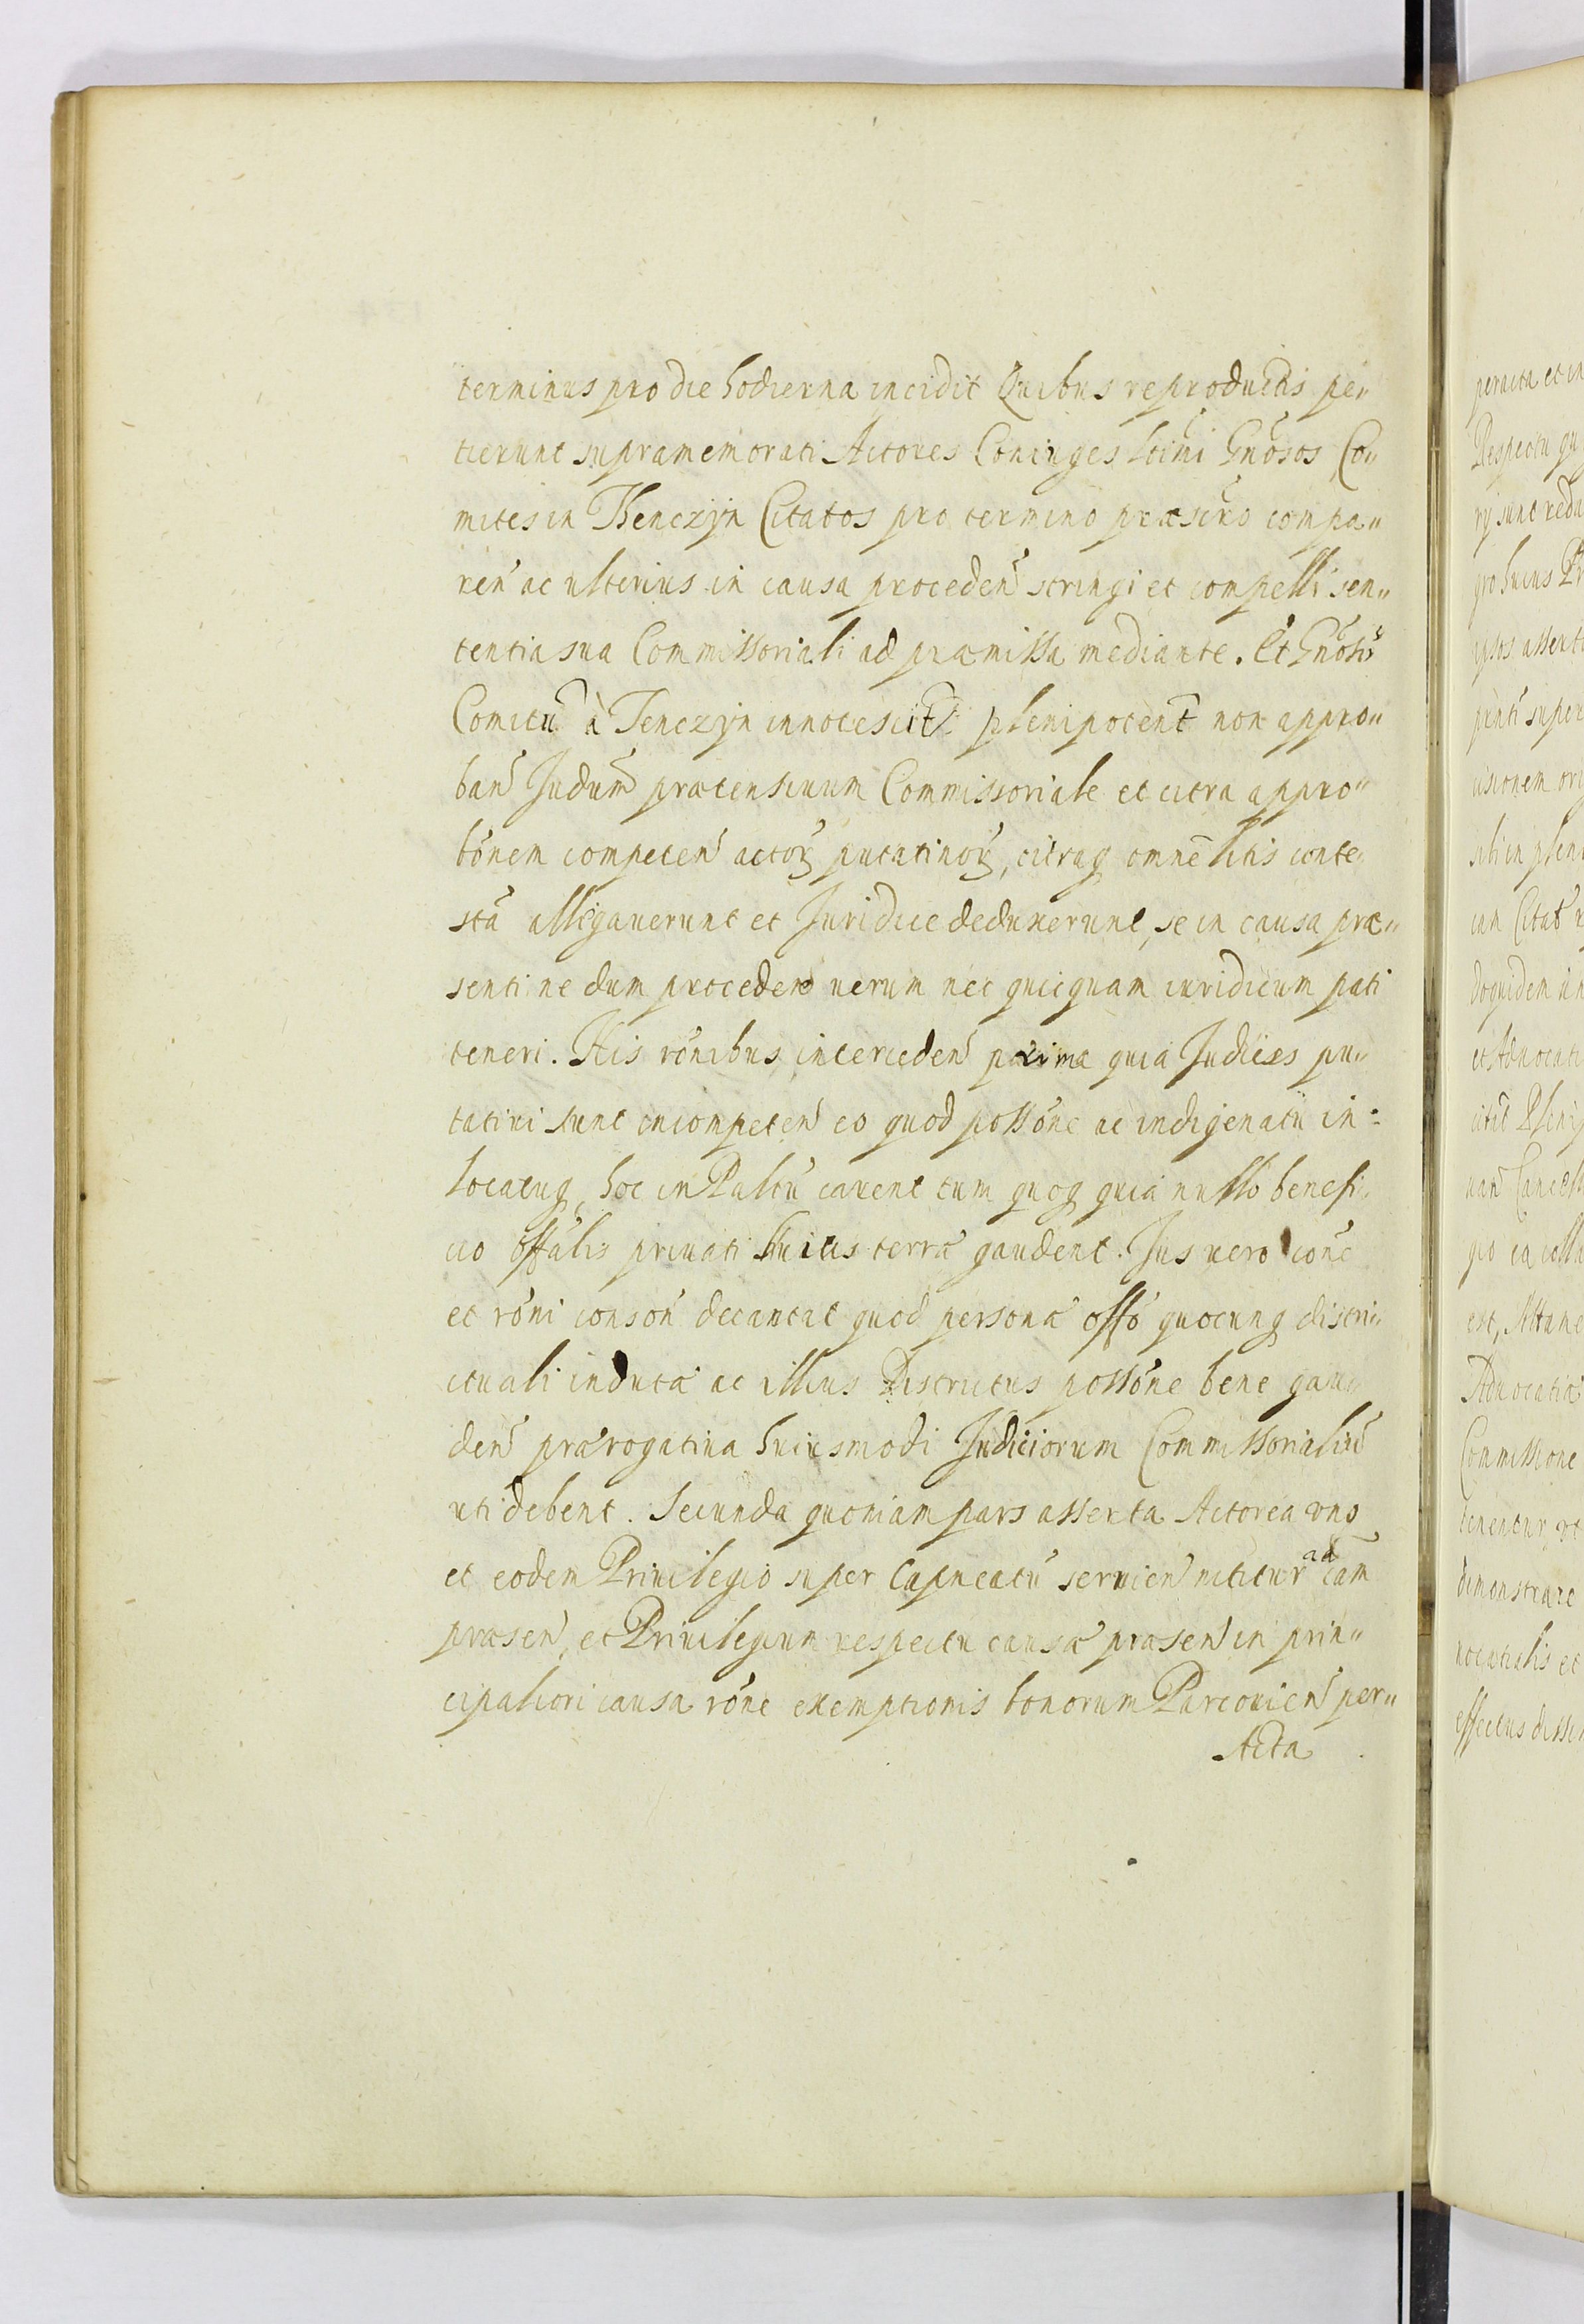 terminus pro die hodierna incidit Quibus reproductis pe„
tierunt supramemorati Actores Coniuges Gnosos Co„
mites in Thenczyn Citatos pro termino præsenti compa„
ren ac ulterius in causa proceden stringi et compelli sen„
tentia sua Commissoriali ad præmissa mediante. Et Gnosi
Comitu à Tenczyn plenipotent non appro„
ban Judum prætensiuum Commissoriale et citra appro„
bonem competen actorꝝ putatiuorꝝ, citraq omne litis conte„
sta allegauerunt et Juridice deduxerunt, se in causa præ„
senti ne dum proceden uerum nec quicquam iuridicum pati
teneri. His ronibus interceden prima quia Judices pu„
tatiui sunt incompeten eo quod possone ac indigenatu in:
locatuq, hoc in Paltu carent tum quoq quia nullo benefi„
cio offalis priuati huius terræ gaudent. Jus uero cone
et roni conson decantat quod personæ offo quocunq distri„
ctuali indutæ ac illius Districtus possone bene gau„
den prærogatiua huiusmodi Judiciorum Commissorialiu
uti debent. Secunda quoniam pars asserta Actorea uno
et eodem Priuilegio super Capneatu seruien nititur ad cam
præsen, et Priuilegium respectu causæ præsen in prin„
cipaliori causa rone exemptionis bonorum Parcouien per„
Acta
peracta et in
Respectu qu
ry sunt redu
gro huius Pr
ipsos asserti
super
cisionem ori
sibi in plen
iam Citat
doquidem
et Aduocati
est,
Aduocatiæ
Commissione
tenentur, ut
demonstrare
uocatialis et
effectus